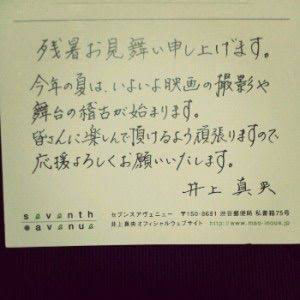 残暑お見舞い申し上げます。
今年の夏は、いよいよ映画の撮影や
舞台の稽古が始まります。
皆さんに楽しんで頂けるよう頑張りますので
応援よろしくお願いいたします。
井上真央
seventh avenue
セブンスアヴェニュー 〒150-8681 渋谷郵便局 私書箱75号
井上真央オフィシャルウェブサイト http://www.mao-inoue.jp